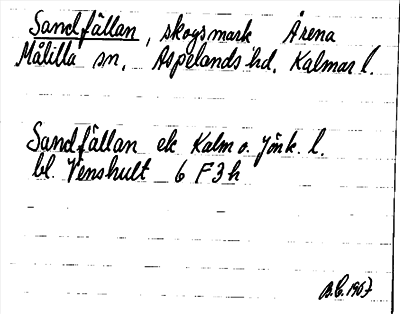 Sandfällan, skogsmark Årena
Målilla sn, Aspelands hd, Kalmar l.
Sandfällan ek Kalm o. Jönk. l.
bl. Venshult 6 F 3 h
B.E. 1967